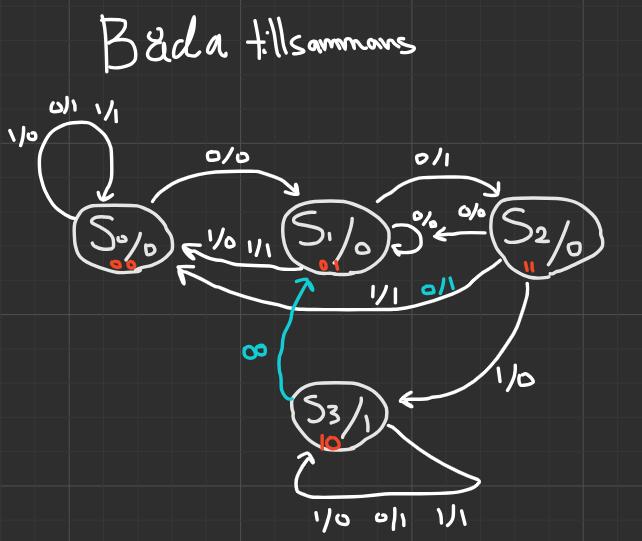 Båda tillsammans
0/1 1/1
1/0
0/0
0/1
S0/0
00
1/0 1/1
S1/0
01
0/0
0/0
S2/0
11
1/1 0/1
1/0
S3/1
10
1/0 0/1 1/1